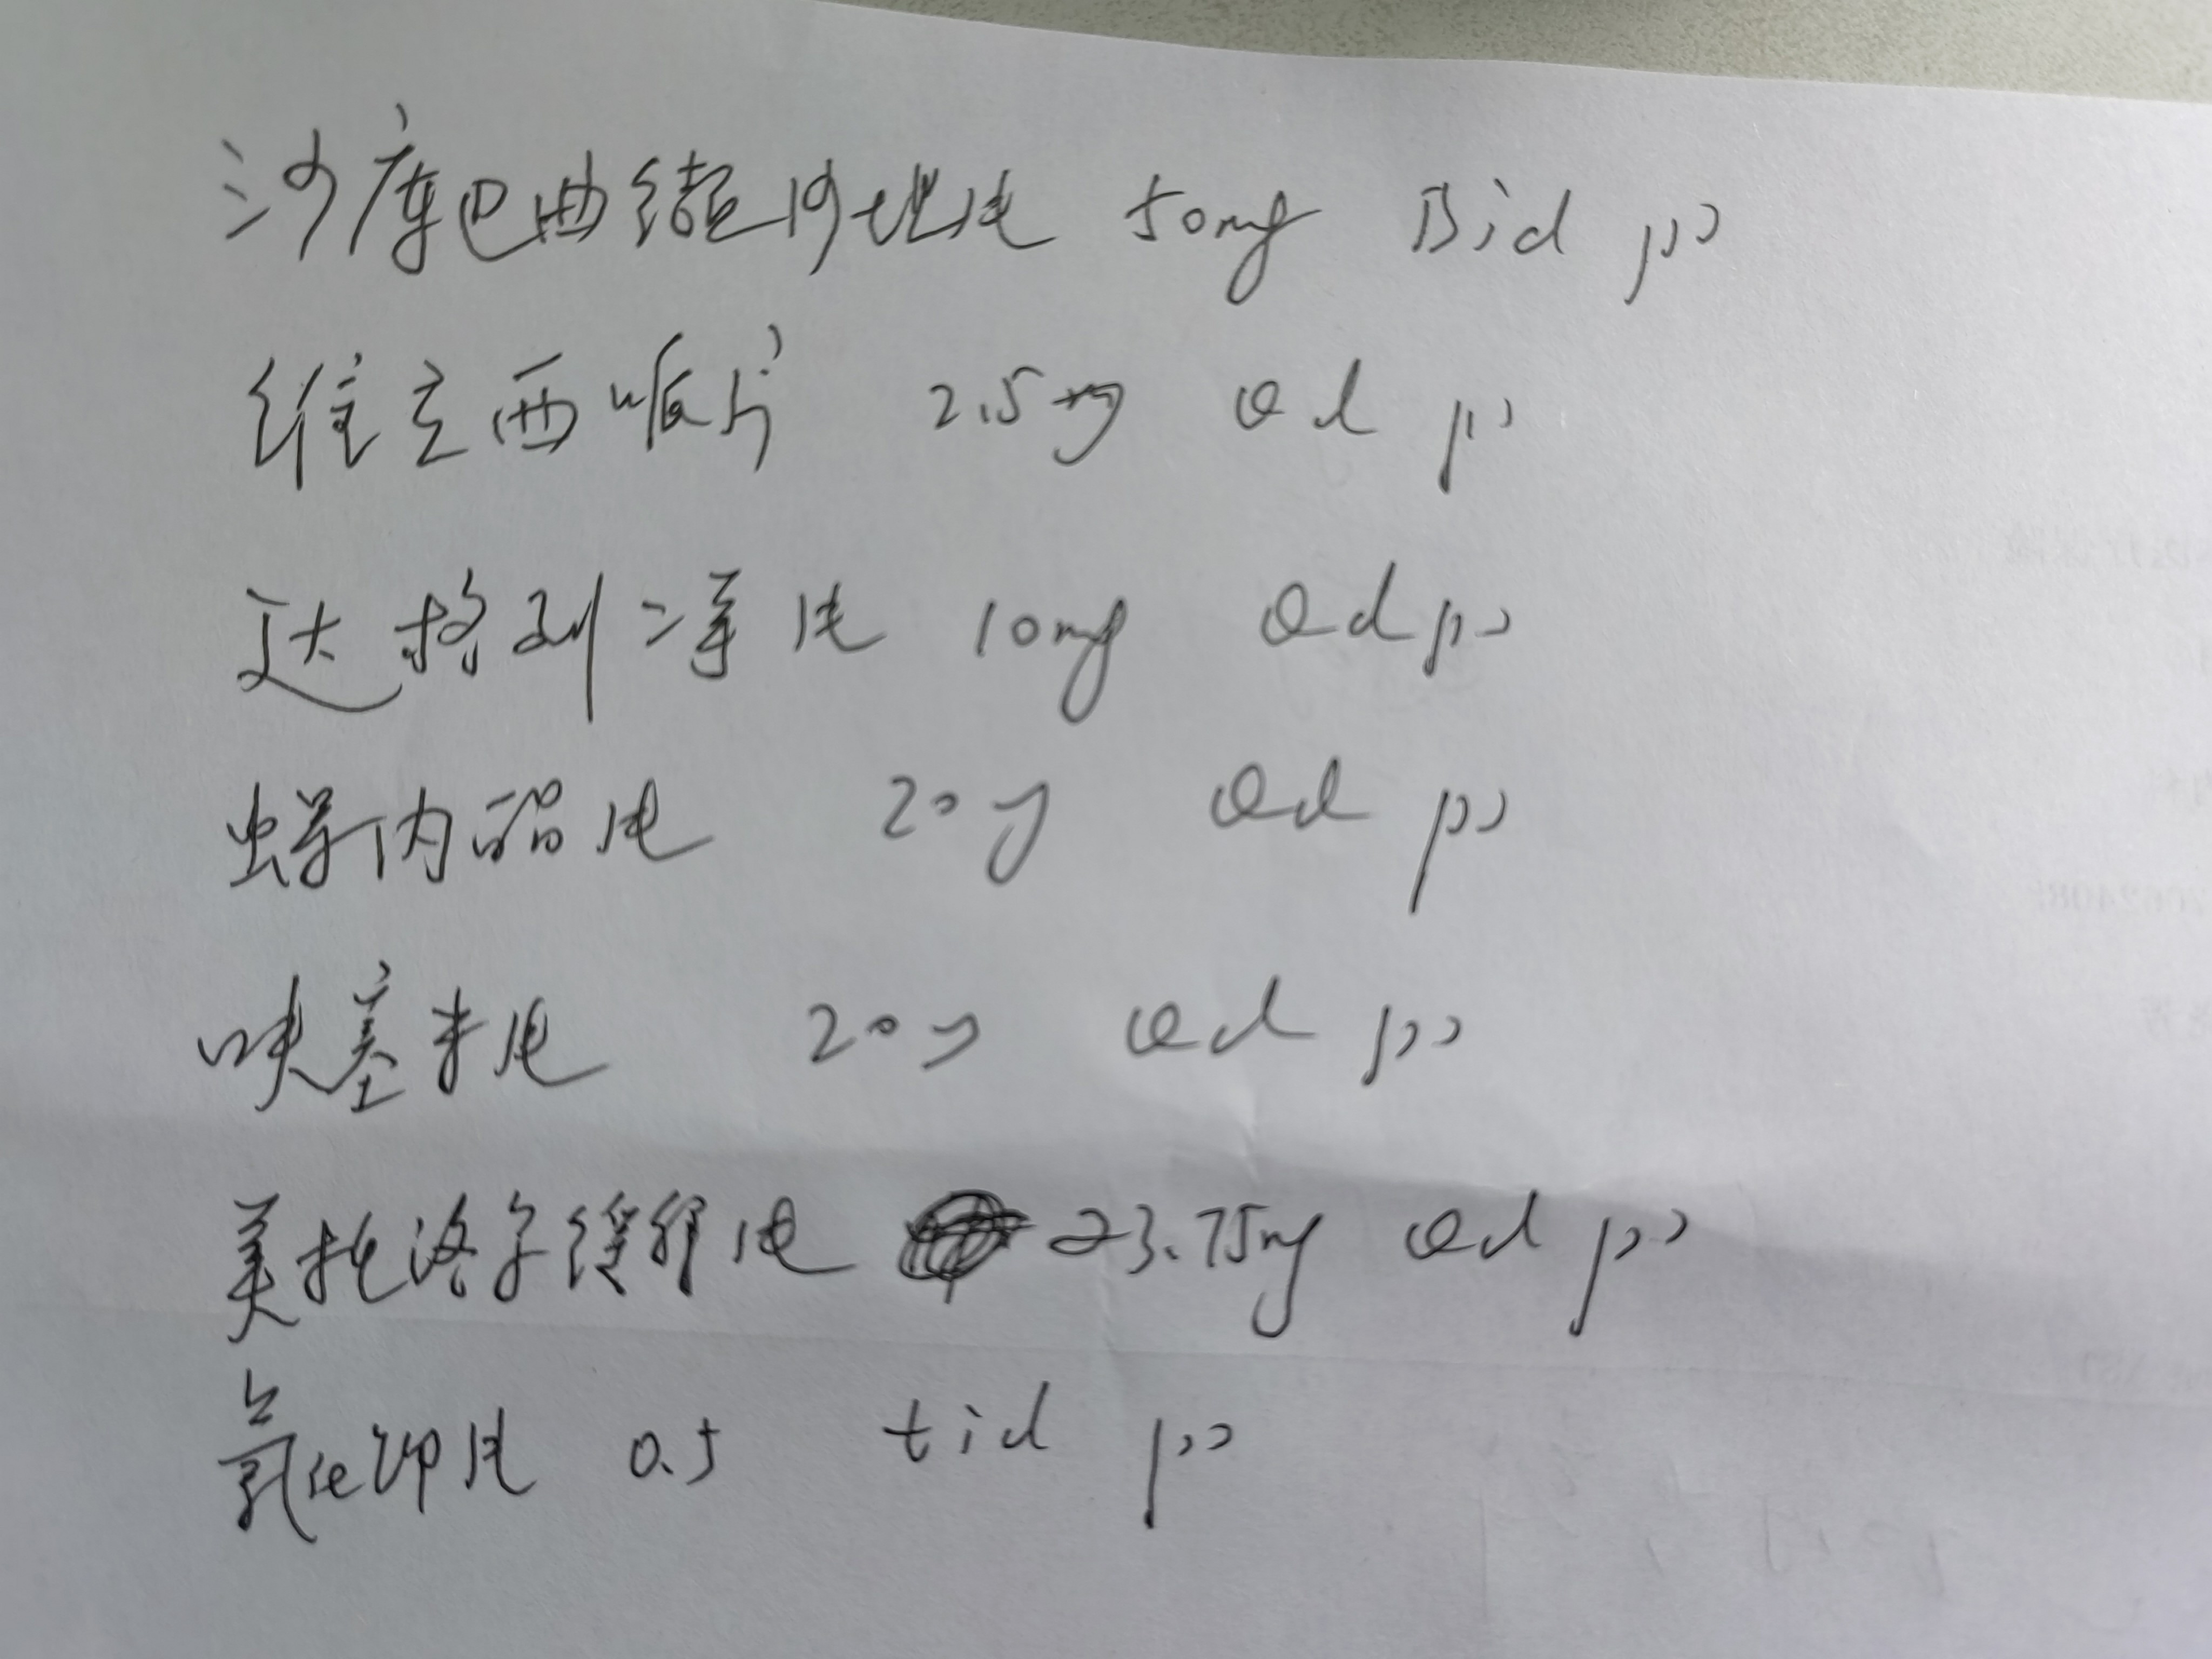 沙库巴曲缬沙坦片 50mg Bid po
维立西呱片 2.5mg Qd po
达格列净片 10mg Qd po
螺内酯片 20mg Qd po
呋塞米片 20mg Qd po
美托洛尔缓释片 23.75mg Qd po
氯化钾片 0.5 tid po